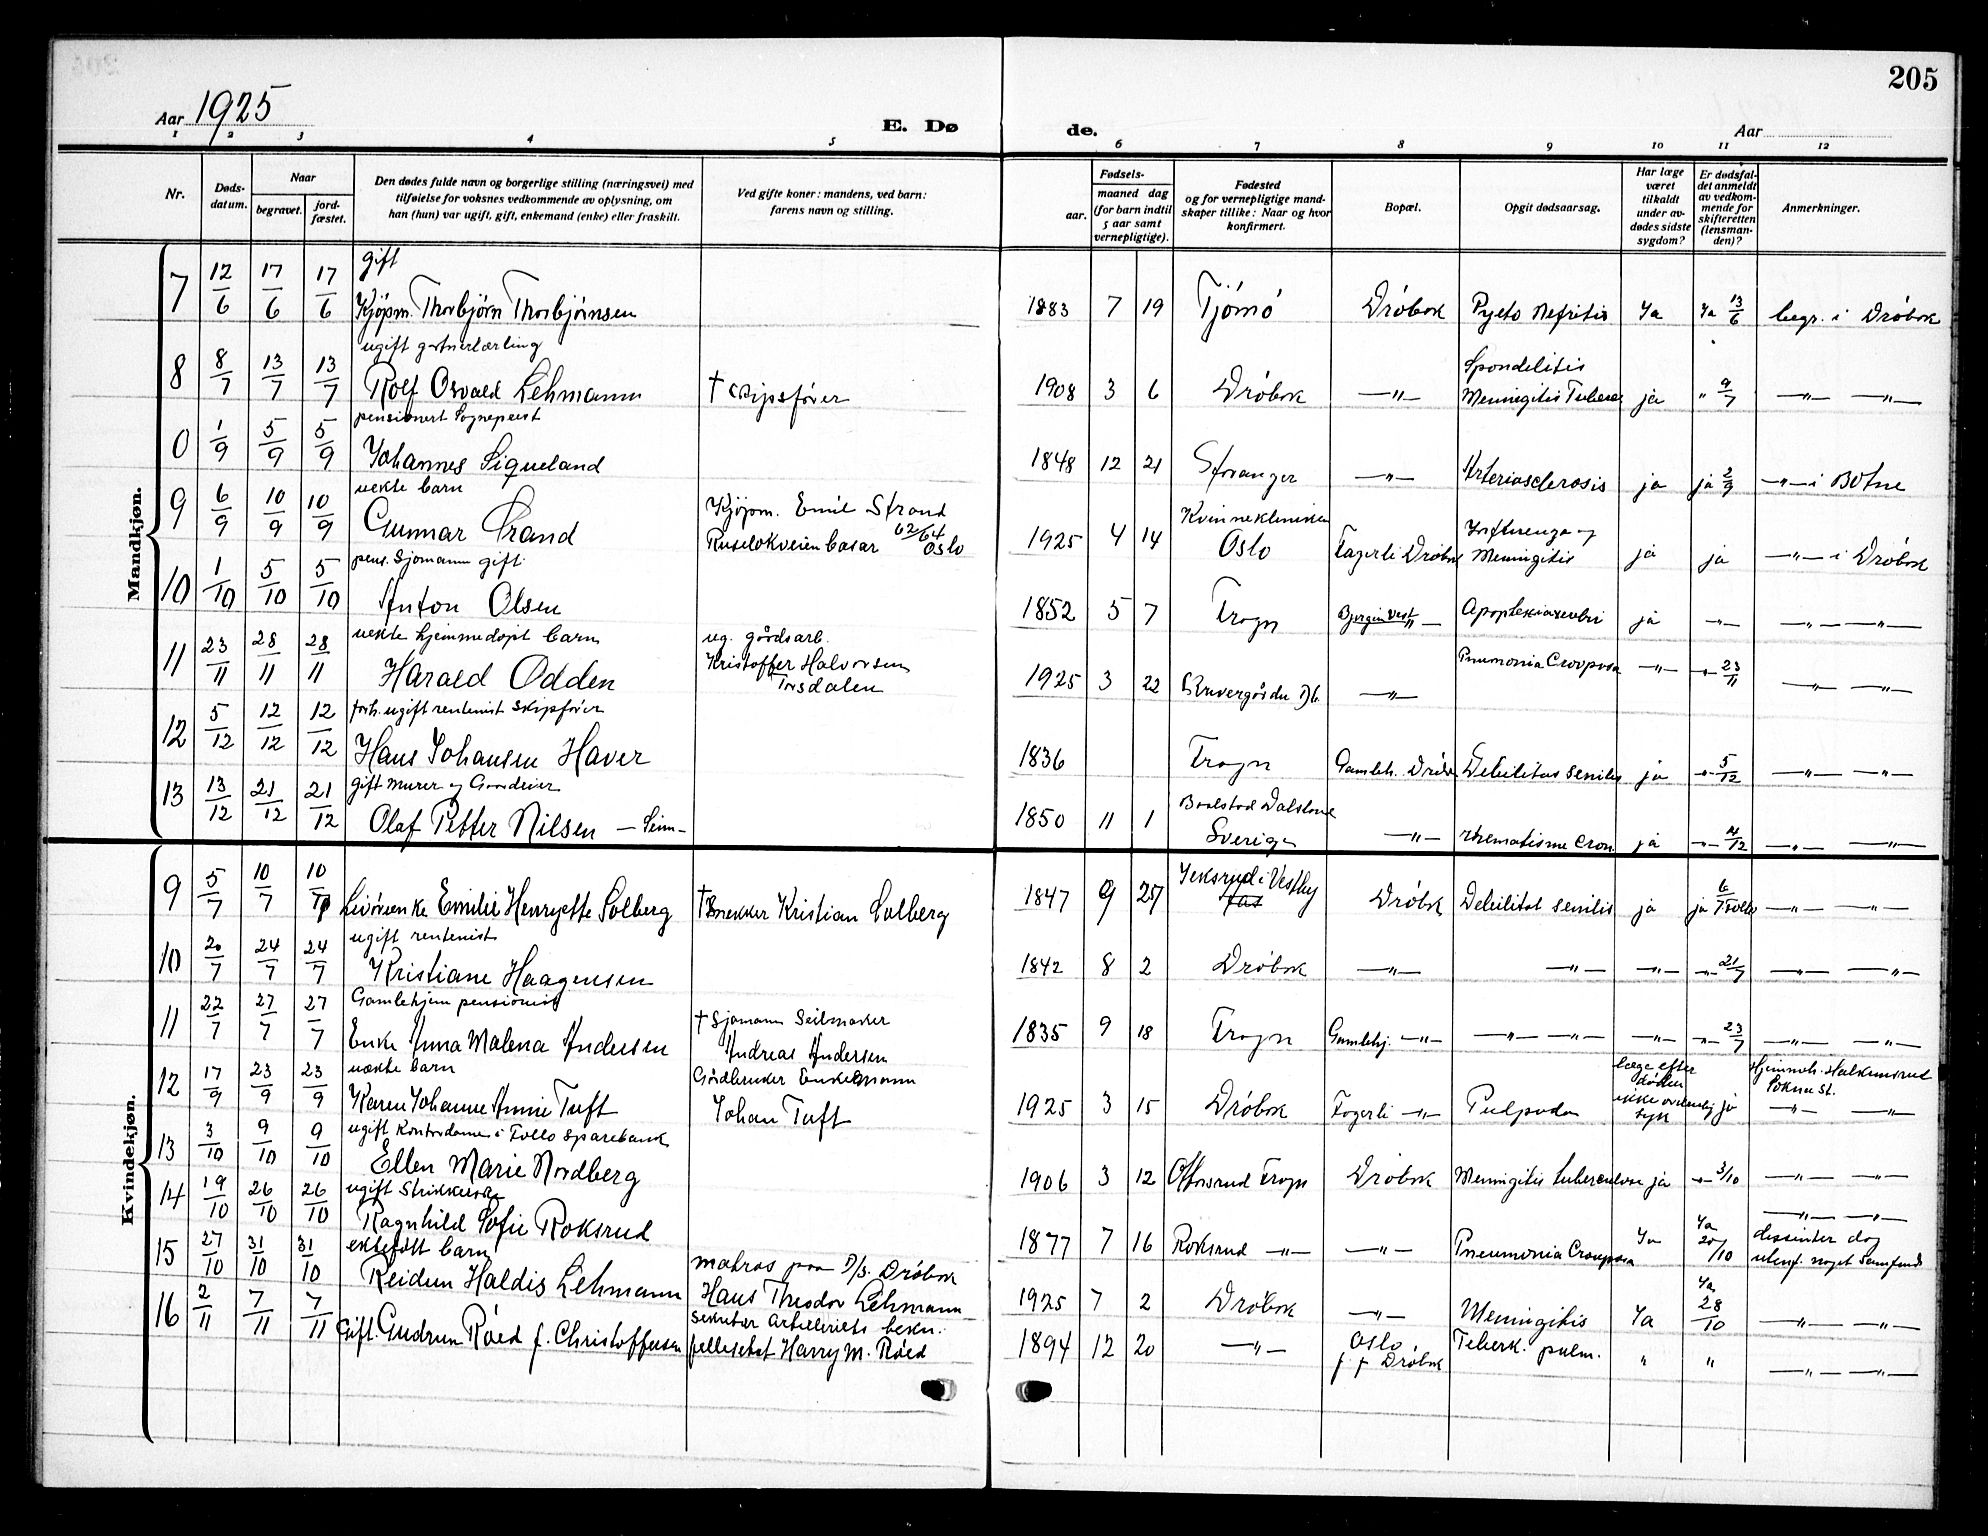 205
Aar 1925
E. Dø de.
Aar
1 2 3 4 5 6 7 8 9 10 11 12
Nr.
Døds-datum.
Naar
begravet.
jord-fæstet.
Den dødes fulde navn og borgerlige stilling (næringsvei) med
tilføielse for voksnes vedkommende av oplysning, om
han (hun) var ugift, gift, enkemand (enke) eller fraskilt.
Ved gifte koner: mandens, ved barn:
farens navn og stilling.
Fødsels-
aar.
maaned dag
(for barn indtil
5 aar samt
vernepligtige).
Fødested
og for vernepligtige mand-
skaper tillike: Naar og hvor
konfirmert.
Bopæl.
Opgit dødsaarsag.
Har læge
været
tilkaldt
under av-
dødes sidste
sygdom?
Er dødsfal-
det anmeldt
av vedkom-
mende for
skifteretten
(lensman-
den)?
Anmerkninger.
Mandkjøn.
gift
7 12/6 17/6 17/6 Kjöpm. Thorbjörn Thorbjörnsen 1883 7 19 Tjömö Dröbok Pyeto Nefritis Ja Ja 13/6 begr. i Dröbok
ugift gartnerlærling
Spondelitis
8 8/7 13/7 13/7 Rolf Osvald Lehmann † skipsförer 1908 3 6 Dröbok —"— Meningitis Tuberc ja " 9/7 —"— —"—
pensionert Sogneprest
0 1/9 5/9 5/9 Johannes Siqueland 1848 12 21 Stavanger —"— Arteriosclerosis ja ja 2/9 —"— i Botne
uekte barn
Kjöpm. Emil Strand
Kvinneklinikken
Influenza og
9 6/9 10/9 10/9 Gunnar Strand Ruselökveien basar 62/64 Oslo 1925 4 14 Oslo Fagerli Dröbok Meningitis ja ja —"— i Dröbok
pens. Sjömann gift
10 1/10 5/10 5/10 Anton Olsen 1852 5 7 Frogn —"— ja —"— —"— —"—
uekte hjemmedöpt barn
ug. gårdsarb.
Kristoffer Halvorsen
11 23/11 28/11 28/11 Harald Odden 1925 3 22 —"— Pneumonia Crouposa —"— —"— 23/11 —"— —"—
forh. ugift rentenist Skipsförer
12 5/12 12/12 12/12 Hans Johansen Haver 1836 Frogn Gamleh. Dröb Debilitas senilis ja —"— 5/12 —"— —"—
gift murer og Gaardeier
13 13/12 21/12 21/12 Olaf Petter Nilsen 1850 11 1 Dalsland Sverige —"— Rhematisme Cron. ja —"— /12 —"— —"—
Kvindekjøn.
9 5/7 10/7 10/7 Emilie Henryette Solberg † Snekker Kristian Solberg 1847 9 25 Jeksrud i Vestby Dröbk Debilitat senilis ja ja 6/7 Follo —"— —"—
ugift rentenist
10 20/7 24/7 24/7 Kristiane Haagensen 1842 8 2 Dröbok —"— —"— —"— —"— 21/7 —"— —"—
Gamlehjem pensionist
† Sjömann Seilmaker
11 22/7 27/7 27/7 Enke Anna Malena Andersen Andreas Andersen 1835 9 18 Frogn Gamlehj. —"— —"— —"— —"— —"— —"— 23/7 —"— —"—
uekte barn
Gårdbruker Enkemann
læge efter döden
12 17/9 23/9 23/9 Karen Johanne Annie Tuft Johan Tuft 1925 3 15 Dröbok Fagerli —"— ikke ordentlig syk ja Hjemmeh. Sokna St. —"— —"—
ugift Kontordame i Follo Sparebank
13 3/10 9/10 9/10 Ellen Marie Nordberg 1906 3 12 Ottarsrud Frogn Dröbok Meningitis tuberculose ja —"— 3/10 —"— —"—
ugift Strikkerske
14 19/10 26/10 26/10 Ragnhild Sofie Roksrud 1877 7 16 Roksrud —"— —"— Pneumonia Crouposa Ja Ja 20/10 —"— —"— dissinter dog utenf. noget Samfund
ektefödt barn
matros paa D/S. Dröbok
15 27/10 31/10 31/10 Reidun Haldis Lehmann Hans Theodor Lehmann 1925 7 2 Dröbok —"— Meningitis Ja Ja 28/10 —"— —"—
Sekretær Artilleriets bekn.
16 2/11 7/11 7/11 Gift. Gudrun Röed f. Christoffersen felleseket Harry M. Röed 1894 12 20 —"— Oslo f. f Dröbok Teberk. pulm. " " —"— —"—